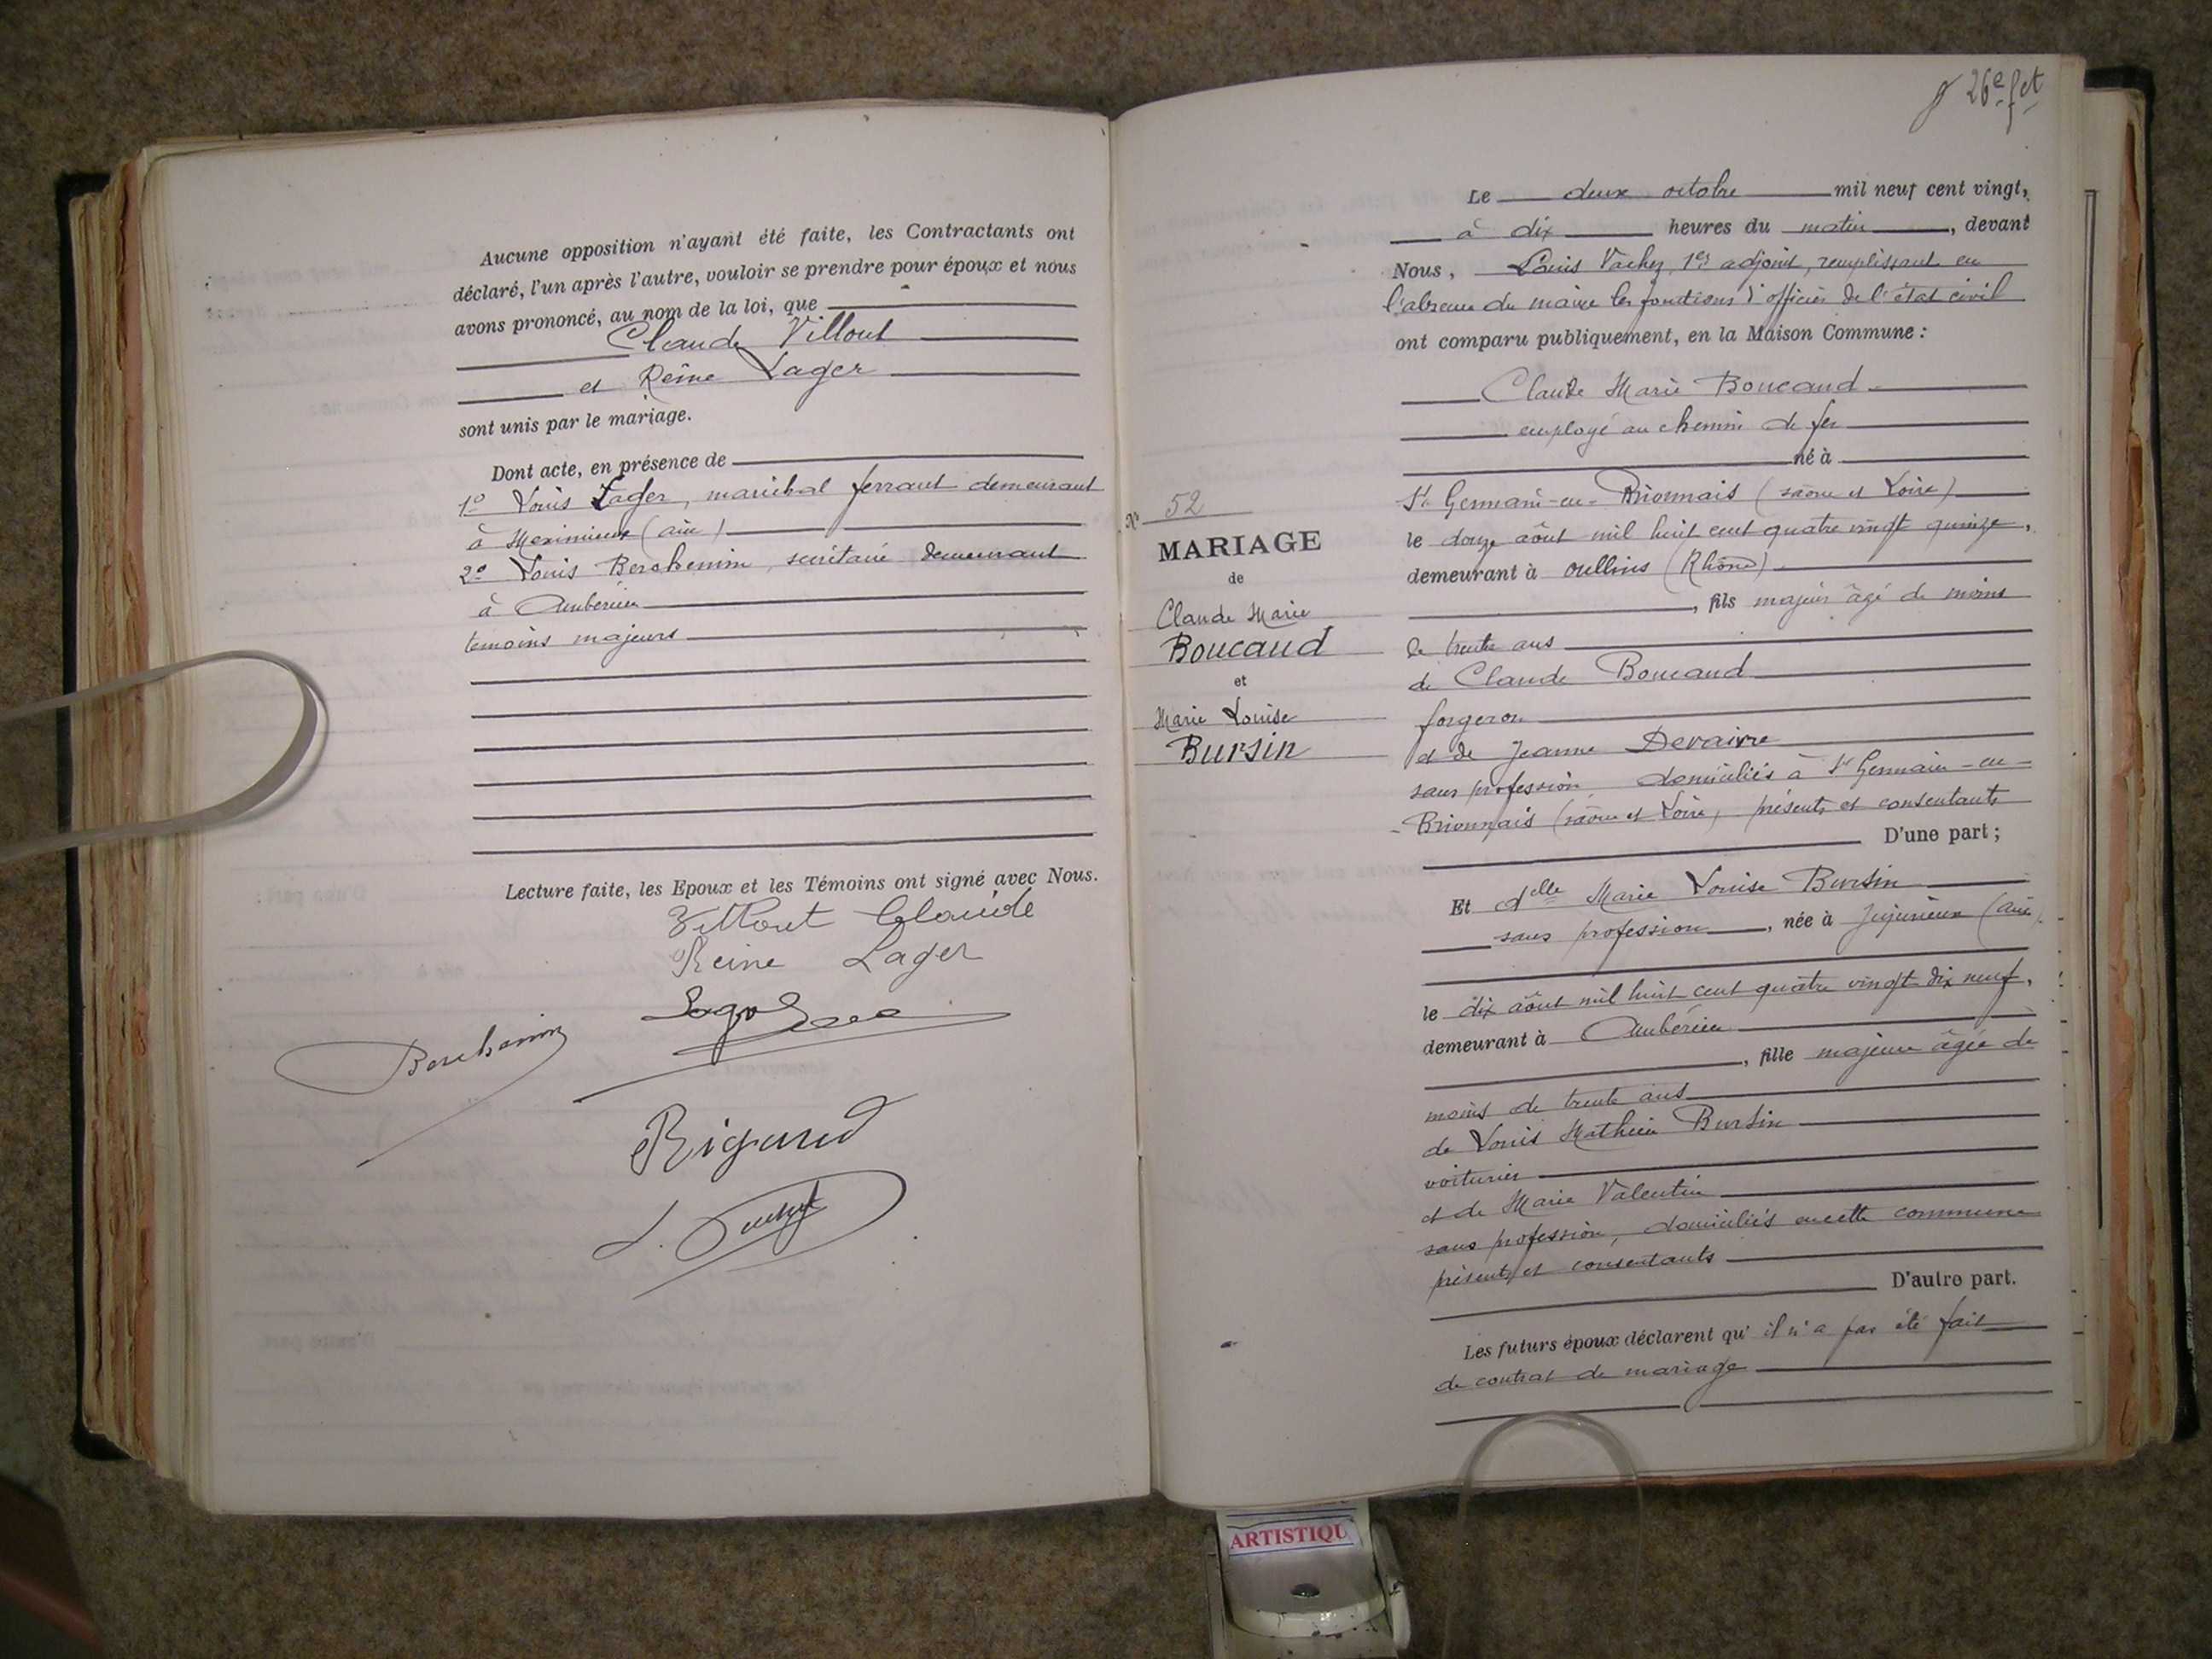 Aucune opposition n'ayant été faite, les Contractants ont
déclaré, l'un après l'autre, vouloir se prendre pour époux et nous
avons prononcé, au nom de la loi, que
Claude Villout
et Reine Lager
sont unis par le mariage.
Dont acte, en présence de
1º Louis Lager, maréchal ferrant demeurant
à Meximieux (ain)
2º Louis Berchemin, secrétaire demeurant
à Ambérieu
témoins majeurs
Lecture faite, les Epoux et les Témoins ont signé avec Nous.
Villout Claude
Reine Lager
Lager
Berchemin
Rigaud
26e fet
Le deux octobre mil neuf cent vingt,
à dix heures du matin, devant
Nous, Louis Vachez, 1er adjoint, remplissant en
l'absence du maire les fonctions d'officier de l'état civil
ont comparu publiquement, en la Maison Commune :
Claude Marie Boucaud
employé au chemin de fer
né à
St Germain-en-Brionnais (saône et Loire)
le douze août mil huit cent quatre vingt quinze,
demeurant à oullins (Rhône)
, fils majeur âgé de moins
de trente ans
de Claude Boucaud
forgeron
et de Jeanne Devaivre
sans profession, domiciliés à St Germain-en-
Brionnais (saône et Loire, présents et consentants
D'une part ;
Et delle Marie Louise Bursin
sans profession, née à Jujurieux (ain)
le dix août mil huit cent quatre vingt dix neuf,
demeurant à Ambérieu
, fille majeure âgée de
moins de trente ans
de Louis Mathieu Bursin
voiturier
et de Marie Valentin
sans profession, domiciliés en cette commune
présents et consentants
D'autre part.
Les futurs époux déclarent qu' il n'a pas été fait
de contrat de mariage
Nº 52
MARIAGE
de
Claude Marie
Boucaud
et
Marie Louise
Bursin
ARTISTIQU